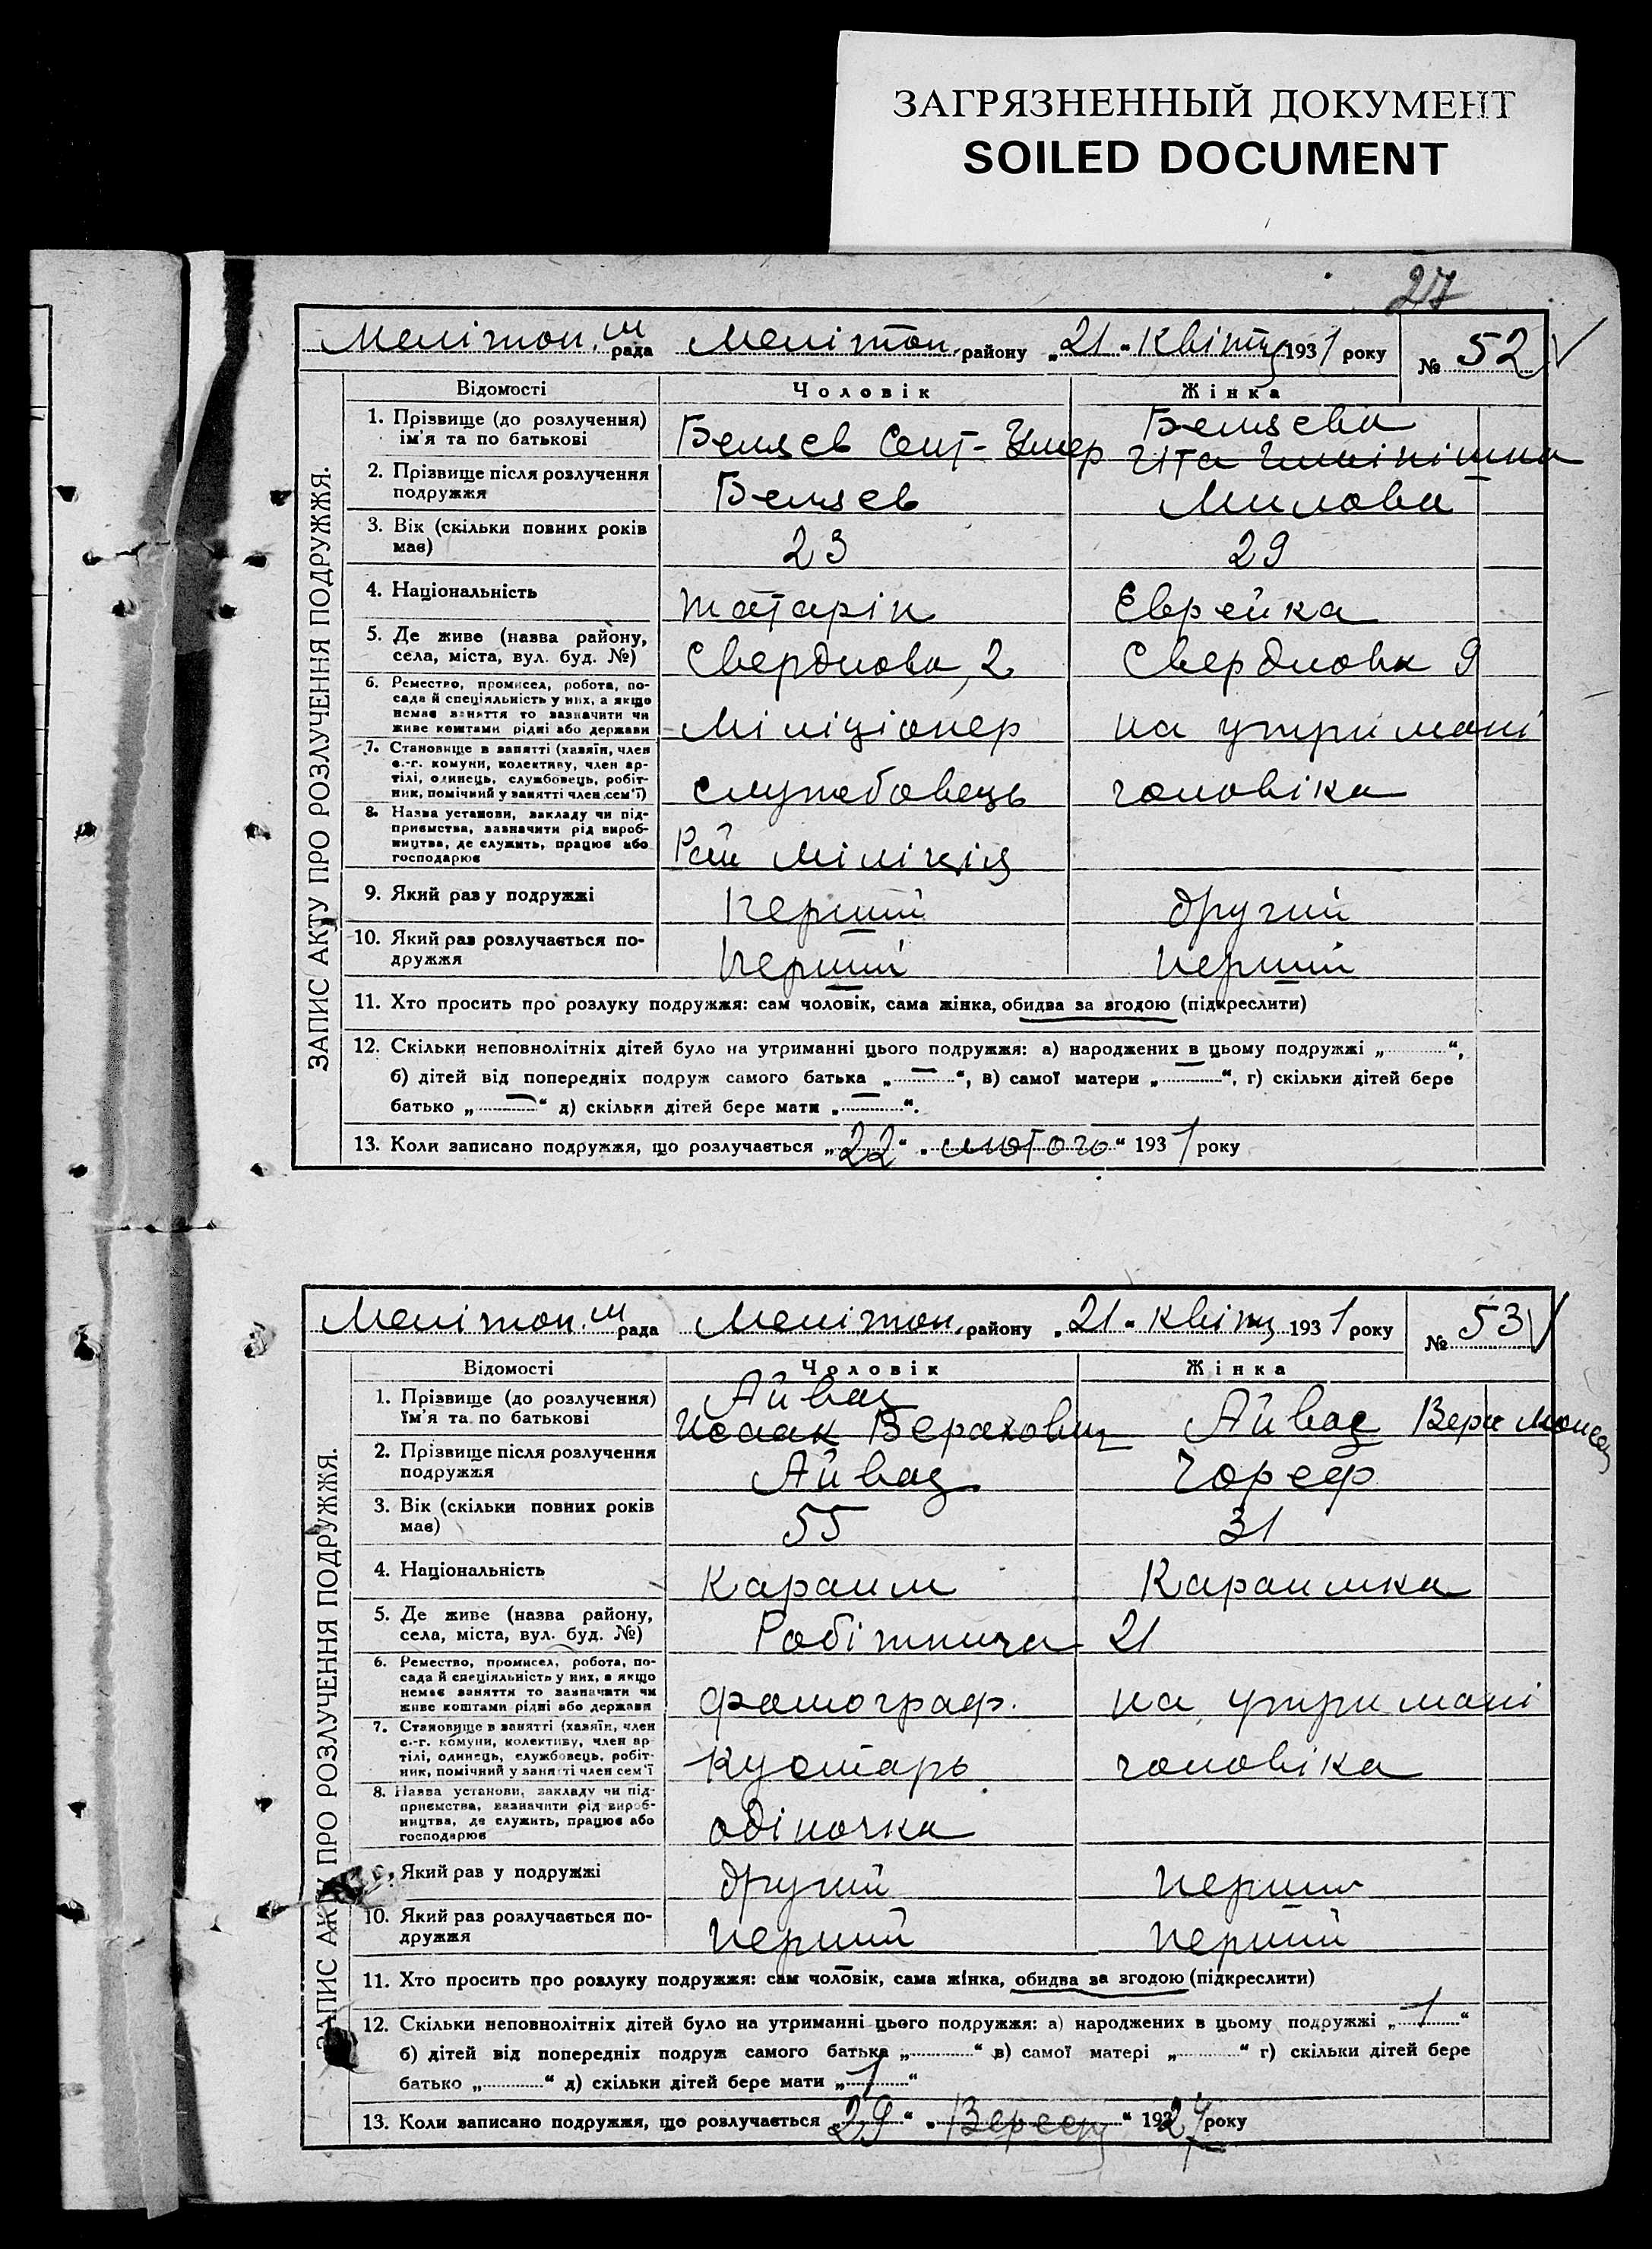 ЗАГРЯЗНЕННЫЙ ДОКУМЕНТ
SOILED DOCUMENT
27
ЗАПИС АКТУ ПРО РОЗЛУЧЕННЯ ПОДРУЖЖЯ.
Мелітоп. м рада Мелітоп. району „21“ Квітня 1931 року № 52
Відомості Чоловік Жінка
1. Прізвище (до розлучення) ім'я та по батькові
Беляев Сеит-Умер
Беляева
Гіта
2. Прізвище після розлучення подружжя
Беляев Милова
3. Вік (скільки повних років має)
23 29
4. Національність
татарін Еврейка
5. Де живе (назва району, села, міста, вул. буд. №)
Свердлова, 2 Свердлова 9
6. Ремество, промисел, робота, посада й спеціяльність у них, а якщо немає заняття то зазначити чи живе коштами рідні або держави
Міліціонер на утримані
7. Становище в занятті (хазяїн, член с.-г. комуни, колективу, член артілі, одинець, службовець, робітник, помічний у занятті член сем'ї)
службовець чоловіка
8. Назва установи, закладу чи підприємства, зазначити рід виробництва, де служить, працює або господарює
Рай міліція
9. Який раз у подружжі
перший другий
10. Який раз розлучається подружжя
перший перший
11. Хто просить про розлуку подружжя: сам чоловік, сама жінка, обидва за згодою (підкреслити)
12. Скільки неповнолітніх дітей було на утриманні цього подружжя: а) народжених в цьому подружжі „ “,
б) дітей від попередніх подруж самого батька „ — “, в) самої матери „ — “, г) скільки дітей бере
батько „ — “ д) скільки дітей бере мати „ — “.
13. Коли записано подружжя, що розлучається „22“ „лютого“ 1931 року
ЗАПИС АКТУ ПРО РОЗЛУЧЕННЯ ПОДРУЖЖЯ.
Мелітоп. м рада Мелітоп. району „21“ квітня 1931 року № 53
Відомості Чоловік Жінка
1. Прізвище (до розлучення) їм'я та по батькові
Айваз
Исаак Верахович Айваз Вера Моисе
2. Прізвище після розлучення подружжя
Айваз Чореф
3. Вік (скільки повних років має)
55 31
4. Національність
Караим Караимка
5. Де живе (назва району, села, міста, вул. буд. №)
Робітнича 21
6. Ремество, промисел, робота, посада й спеціяльність у них, а якщо немає заняття то зазначити чи живе коштами рідні або держави
фотограф. на утримані
7. Становище в занятті (хазяїн, член с.-г. комуни, колективу, член артілі, одинець, службовець, робітник, помічний у занятті член сем'ї
Кустарь чоловіка
8. Назва установи, закладу чи підприємства, зазначити рід виробництва, де служить, працює або господарює
одіночка
9. Який раз у подружжі
другий перший
10. Який раз розлучається подружжя
перший перший
11. Хто просить про розлуку подружжя: сам чоловік, сама жінка, обидва за згодою (підкреслити)
12. Скільки неповнолітніх дітей було на утриманні цього подружжя: а) народжених в цьому подружжі „1“
б) дітей від попередніх подруж самого батька „ “ в) самої матері „ “ г) скільки дітей бере
батько „ “ д) скільки дітей бере мати „1“
13. Коли записано подружжя, що розлучається „29“ „Вересня“ 1924 року